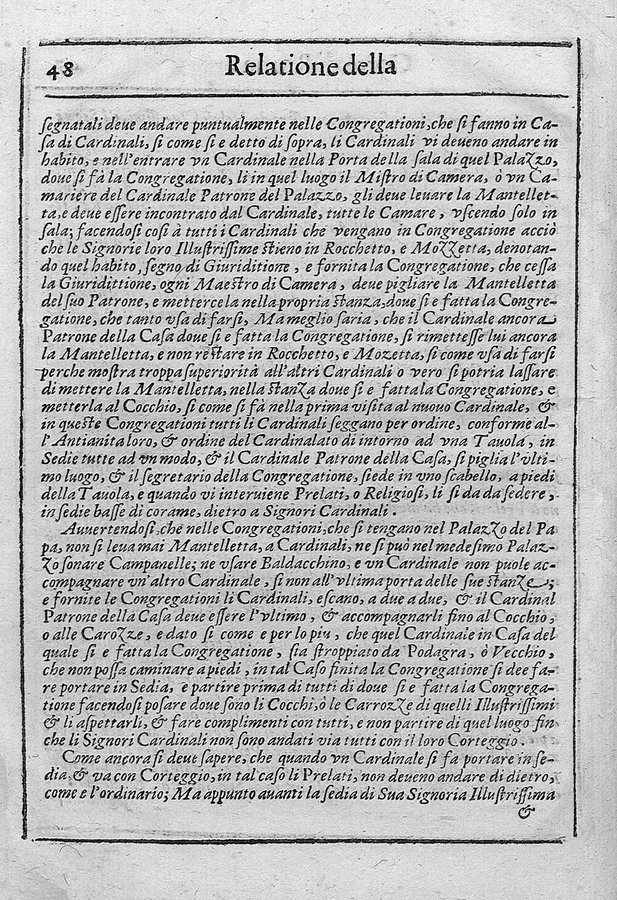 48
Relatione della
segnatali deue andare puntualmente nelle Congregationi, che si fanno in Ca-
sa di Cardinali, si come si e detto di sopra, li Cardinali vi deueno andare in
habito, e nell'entrare vn Cardinale nella Porta della sala di quel Palazzo,
doue si fà la Congregatione, li in quel luogo il Mistro di Camera, ò vn Ca-
mariere del Cardinale Patrone del Palazzo, gli deue leuare la Mantellet-
ta, e deue essere incontrato dal Cardinale, tutte le Camare, vscendo solo in
sala; facendosi così à tutti i Cardinali che vengano in Congregatione acciò
che le Signorie loro Illustrissime stieno in Rocchetto, e Mozzetta, denotan-
do quel habito, segno di Giuriditione, e fornita la Congregatione, che cessa
la Giuridittione, ogni Maestro di Camera, deue pigliare la Mantelletta
del suo Patrone, e mettercela nella propria stanza, doue si e fatta la Congre-
gatione, che tanto vsa di farsi, Ma meglio saria, che il Cardinale ancora
Patrone della Casa doue si e fatta la Congregatione, si rimettesse lui ancora
la Mantelletta, e non restare in Rocchetto, e Mozetta, si come vsa di farsi
perche mostra troppa superiorità all'altri Cardinali o vero si potria lassare
di mettere la Mantelletta, nella stanza doue si e fatta la Congregatione, e
metterla al Cocchio, si come si fà nella prima visita al nuouo Cardinale, &
in queste Congregationi tutti li Cardinali seggano per ordine, conforme al-
l'Antianita loro, & ordine del Cardinalato di intorno ad vna Tauola, in
Sedie tutte ad vn modo, & il Cardinale Patrone della Casa, si piglia l'vlti-
mo luogo, & il segretario della Congregatione, siede in vno scabello, a piedi
della Tauola, e quando vi interuiene Prelati, o Religiosi, li si da da sedere,
in sedie basse di corame, dietro a Signori Cardinali.
Auuertendosi, che nelle Congregationi, che si tengano nel Palazzo del Pa
pa, non si leua mai Mantelletta, a Cardinali, ne si può nel medesimo Palaz-
zo sonare Campanelle; ne vsare Baldacchino, e vn Cardinale non puole ac-
compagnare vn'altro Cardinale, si non all'vltima porta delle sue stanze;
e fornite le Congregationi li Cardinali, escano, a due a due, & il Cardinal
Patrone della Casa deue essere l'vltimo, & accompagnarli fino al Cocchio,
o alle Carozze, e dato si come e per lo piu, che quel Cardinale in Casa del
quale si e fatta la Congregatione, sia stroppiato da Podagra, ò Vecchio,
che non possa caminare a piedi, in tal Caso finita la Congregatione si dee fa-
re portare in Sedia, e partire prima di tutti di doue si e fatta la Congrega-
tione facendosi posare doue sono li Cocchi, ò le Carrozze di quelli Illustrissimi
& li aspettarli, & fare complimenti con tutti, e non partire di quel luogo fin
che li Signori Cardinali non sono andati via tutti con il loro Corteggio.
Come ancora si deue sapere, che quando vn Cardinale si fa portare in se-
dia, & va con Corteggio, in tal caso li Prelati, non deueno andare di dietro,
come e l'ordinario; Ma appunto auanti la sedia di Sua Signoria Illustrissima
&